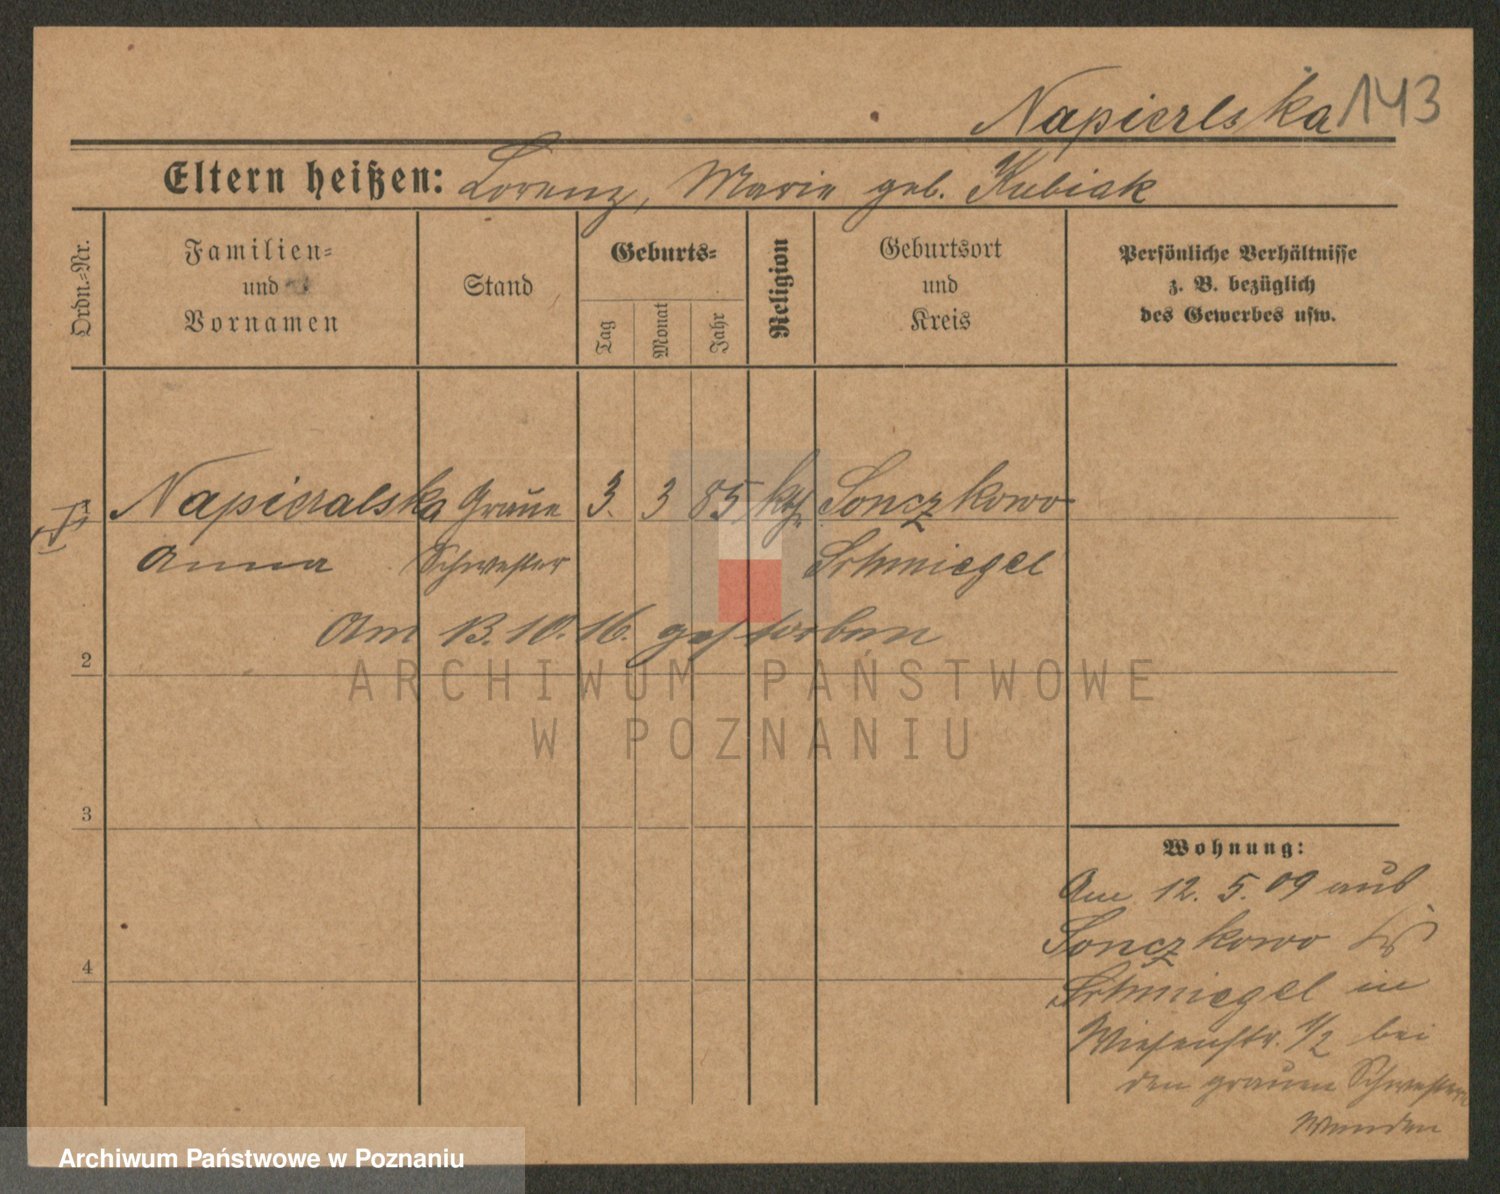 Napierlska 143
Eltern heißen: Lorenz, Marie geb. Kubiak
Ordn.-Nr.
Familien-
und
Vornamen
Stand
Geburts-
Tag
Monat
Jahr
Religion
Geburtsort
und
Kreis
Persönliche Verhältnisse
z. B. bezüglich
des Gewerbes usw.
1 Napieralska Graue 3. 3 85 kth. Sonczkowo
Anna Schwester Schmiegel
Am 13. 10. 16. gestorben
2
ARCHIWUM PAŃSTWOWE
W POZNANIU
3
4
Wohnung:
Am 12. 5. 09 aus
Sonczkowo
Schmiegel in
Wiesenstr. 1/2 bei
den grauen Schwestern
Archiwum Państwowe w Poznaniu